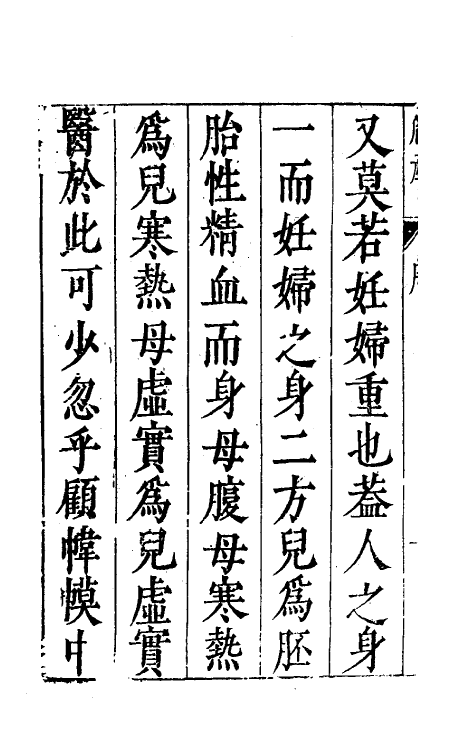 又莫若妊婦重也葢人之身
一而妊婦之身二方兒爲胚
胎性精血而身母腹母寒熱
爲兒寒熱母虛實爲兒虛實
醫於此可少忽乎顧幃幙中